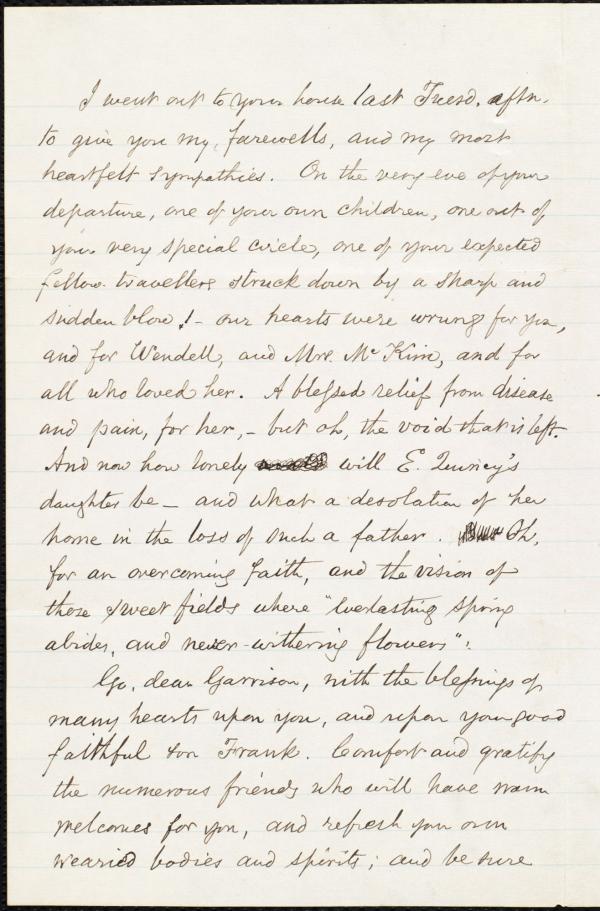 I went out to your house last Tuesd. aftn.
to give you my farewells, and my most
heartfelt sympathies. On the very eve of your
departure, one of your own children, one out of
your very special circle, one of your expected
fellow-travellers struck down by a sharp and
sudden blow! - our hearts were wrung for you,
and for Wendell, and Mrs. McKim, and for
all who loved her. A blessed relief from disease
and pain, for her, - but oh, the void that is left.
And now how lonely will E. Quincy's
daughter be - and what a desolation of her
home in the loss of such a father. Oh,
for an overcoming faith, and the vision of
those sweet fields where "everlasting spring
abides, and never-withering flowers".
Go, dear Garrison, with the blessings of
many hearts upon you, and upon your good
faithful son Frank. Comfort and gratify
the numerous friends who will have warm
welcomes for you, and refresh your own
wearied bodies and spirits; and be sure